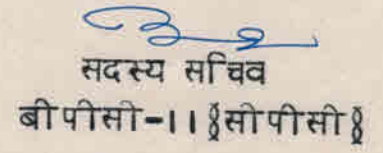 सदस्य सचिव
बीपीसी-11 §सीपीसी§